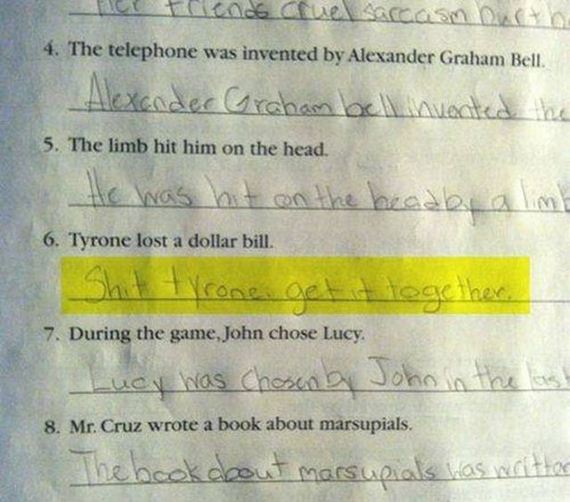 Her friends cruel sarcasm hurt h
4. The telephone was invented by Alexander Graham Bell.
Alexander Graham bell invented the
5. The limb hit him on the head.
He was hit on the head by a limb
6. Tyrone lost a dollar bill.
Shit tyrone. get it together.
7. During the game, John chose Lucy.
Lucy was chosen by John in the last
8. Mr. Cruz wrote a book about marsupials.
The book about marsupials was written